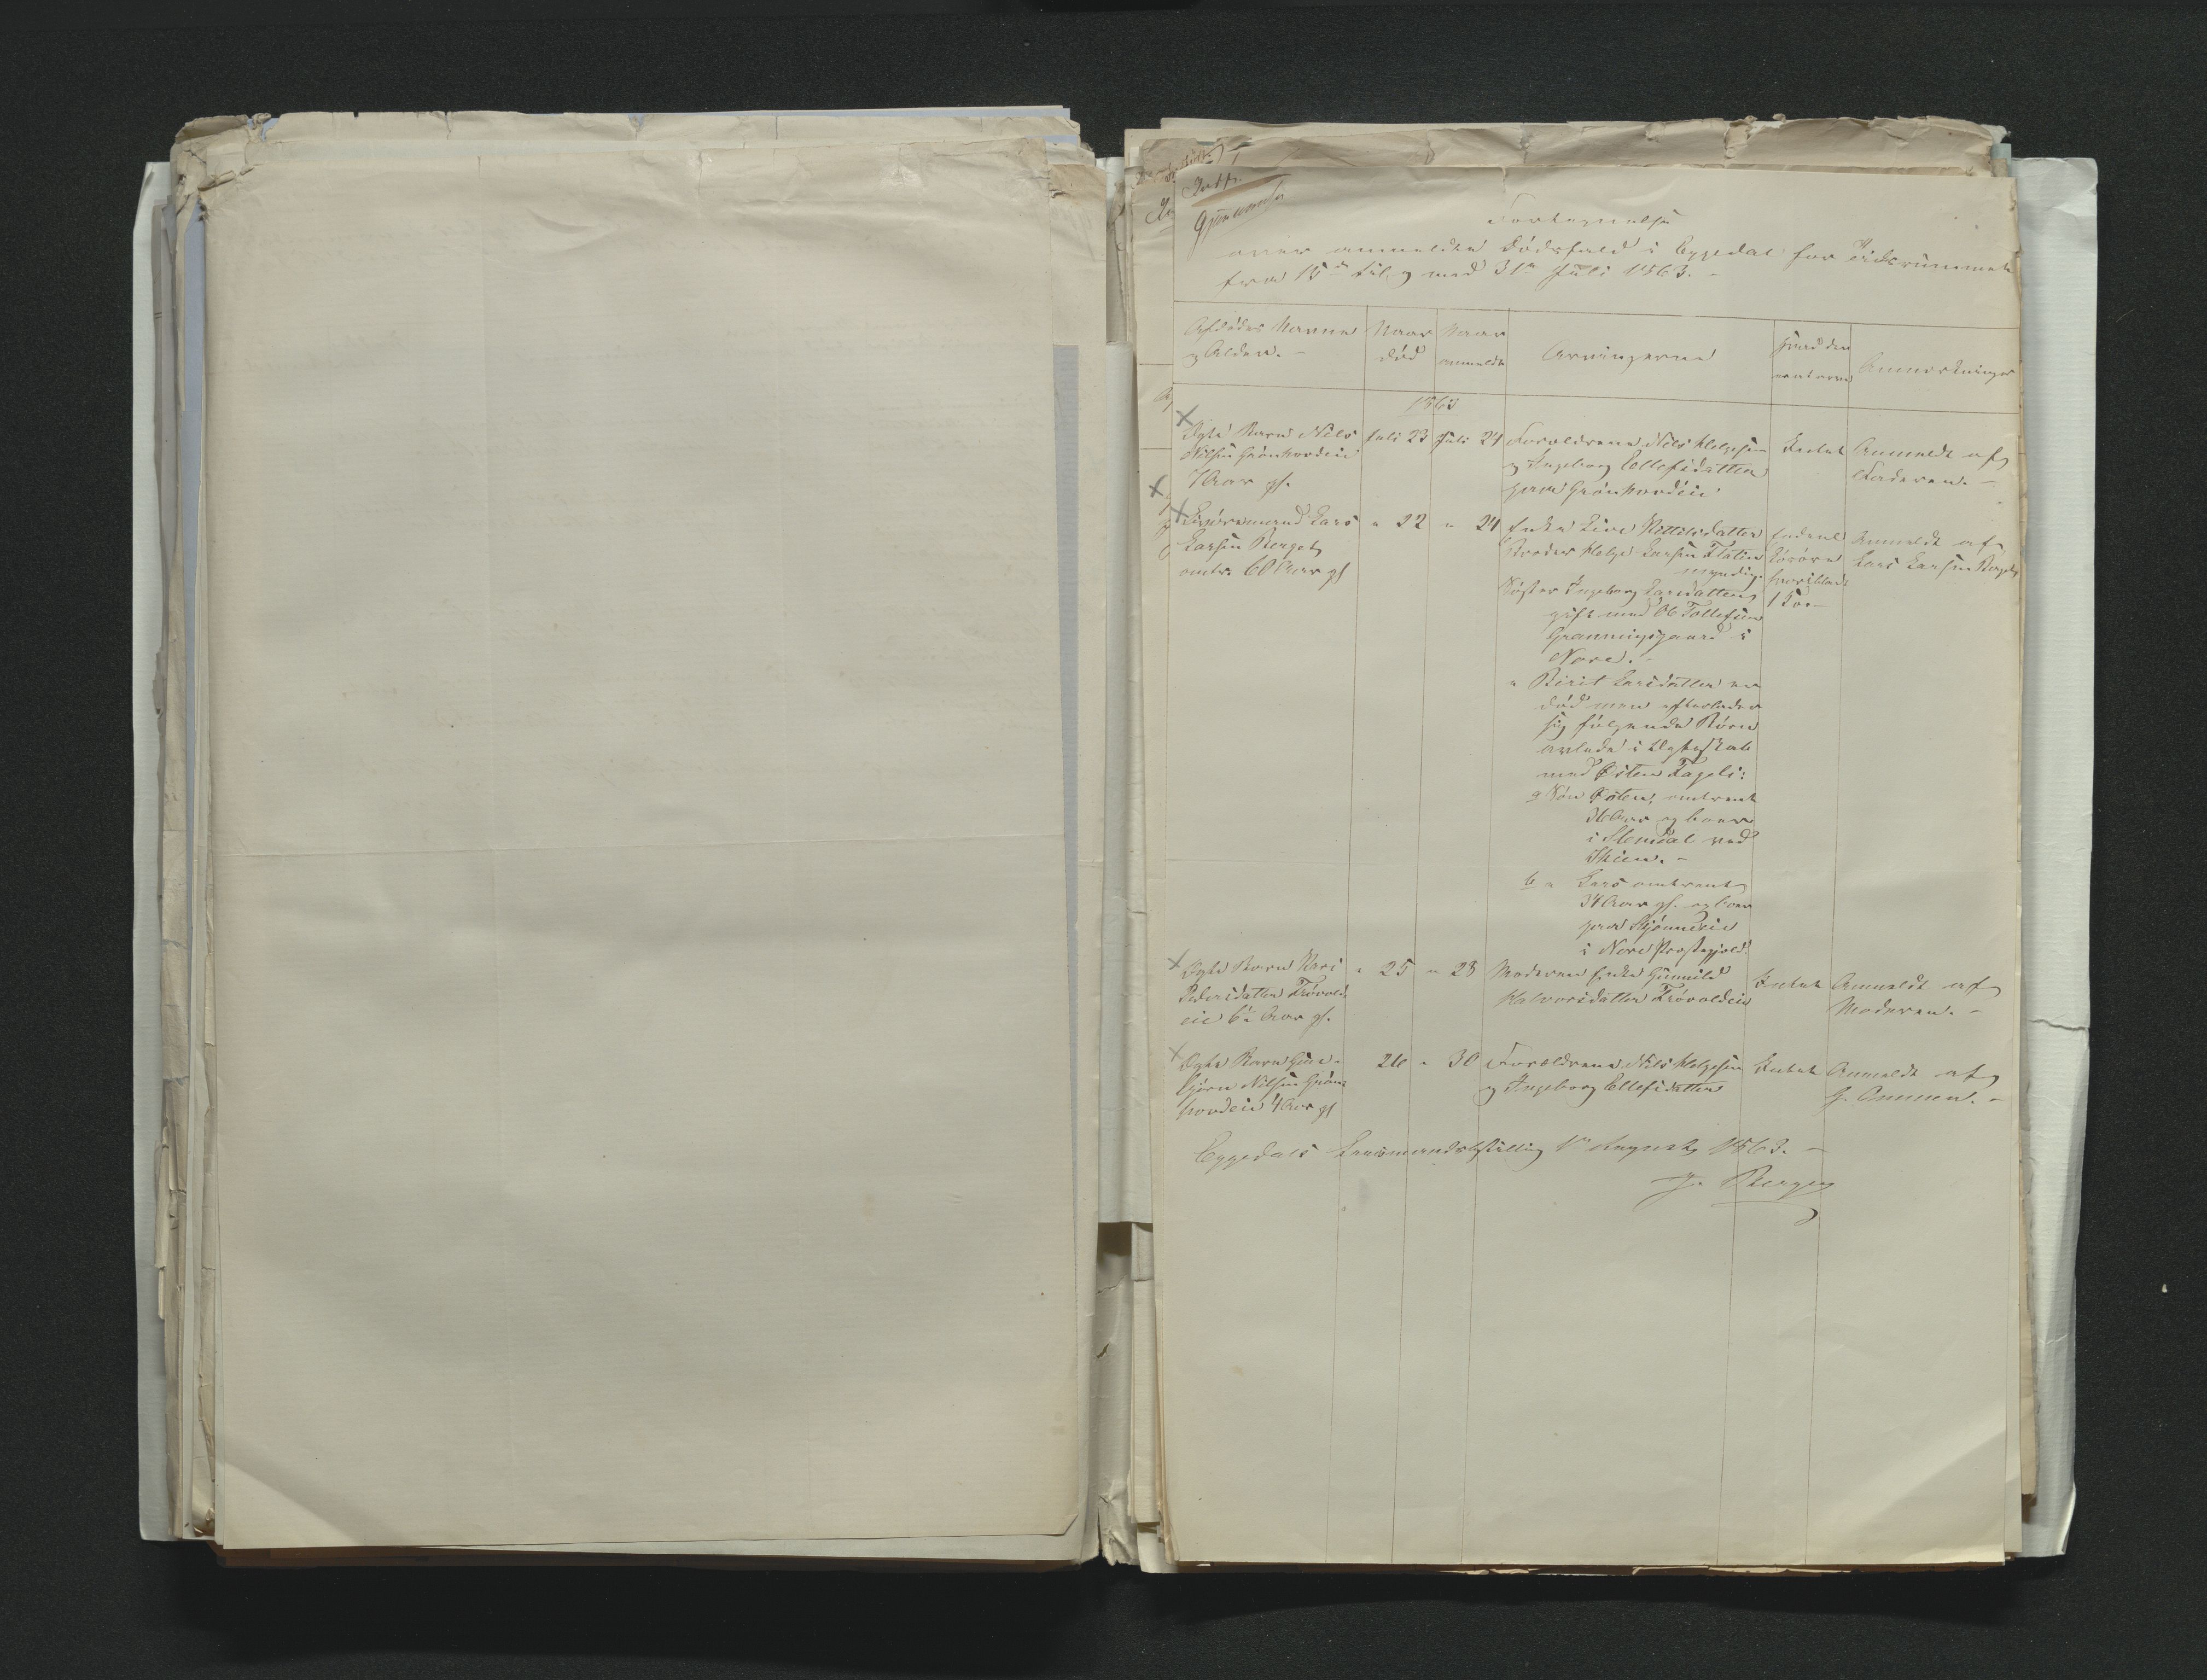 Fortegnelse
over anmeldte Dødsfald i Eggedal for Tidsrummet
fra 15de til og med 31te Juli 1863. -
Afdødes Navne
og Alder. -
Naar
død
Naar
anmeldt
Arvingerne
Anmerkninger
1863
Ægte Barn Nils
Nilsen Grønhovdeie
7 Aar gl.
Juli 23
Juli 24
Forældrene Nils Helgesen
og Ingeborg Ellefsdatter
paa Grønhovdeie
Intet
Anmeldt af
Faderen. -
Lars
Larsen Berget
omtr. 60 Aar gl
" 22
" 24
Enke Live Kittilsdatter
Broder Helge Larsen Flaten
myndig.
Søster Ingeborg Larsdatter
gift med Ole Tollefsen
i
Nore. -
" Birit Larsdatter er
død men efterlader
sig følgende Børn
avlede i Ægteskab
med Østen Fageli:
a Søn Østen, omtrent
36 Aar og boer
i Slemdal ved
Skien. -
b " Lars omtrent
34 Aar gl. og boer
paa
i Nore Præstegjeld.
hvoriblandt
1 Søn
Anmeldt af
Lars Larsen Berget
Ægte Barn Kari
Pedersdatter Frøvold-
eie 6½ Aar gl.
" 25
" 28
Moderen Enke Gunnild
Halvorsdatter Frøvoldeie
Intet
Anmeldt af
Moderen. -
Ægte Barn Gun-
bjørn Nilsen Grøn-
hovdeie 4 Aar gl
26
" 30
Forældrene Nils Helgesen
og Ingeborg Ellefsdatter
Intet
Anmeldt af
Eggedals Lensmandsbestilling 1te August 1863. -
J. Berger